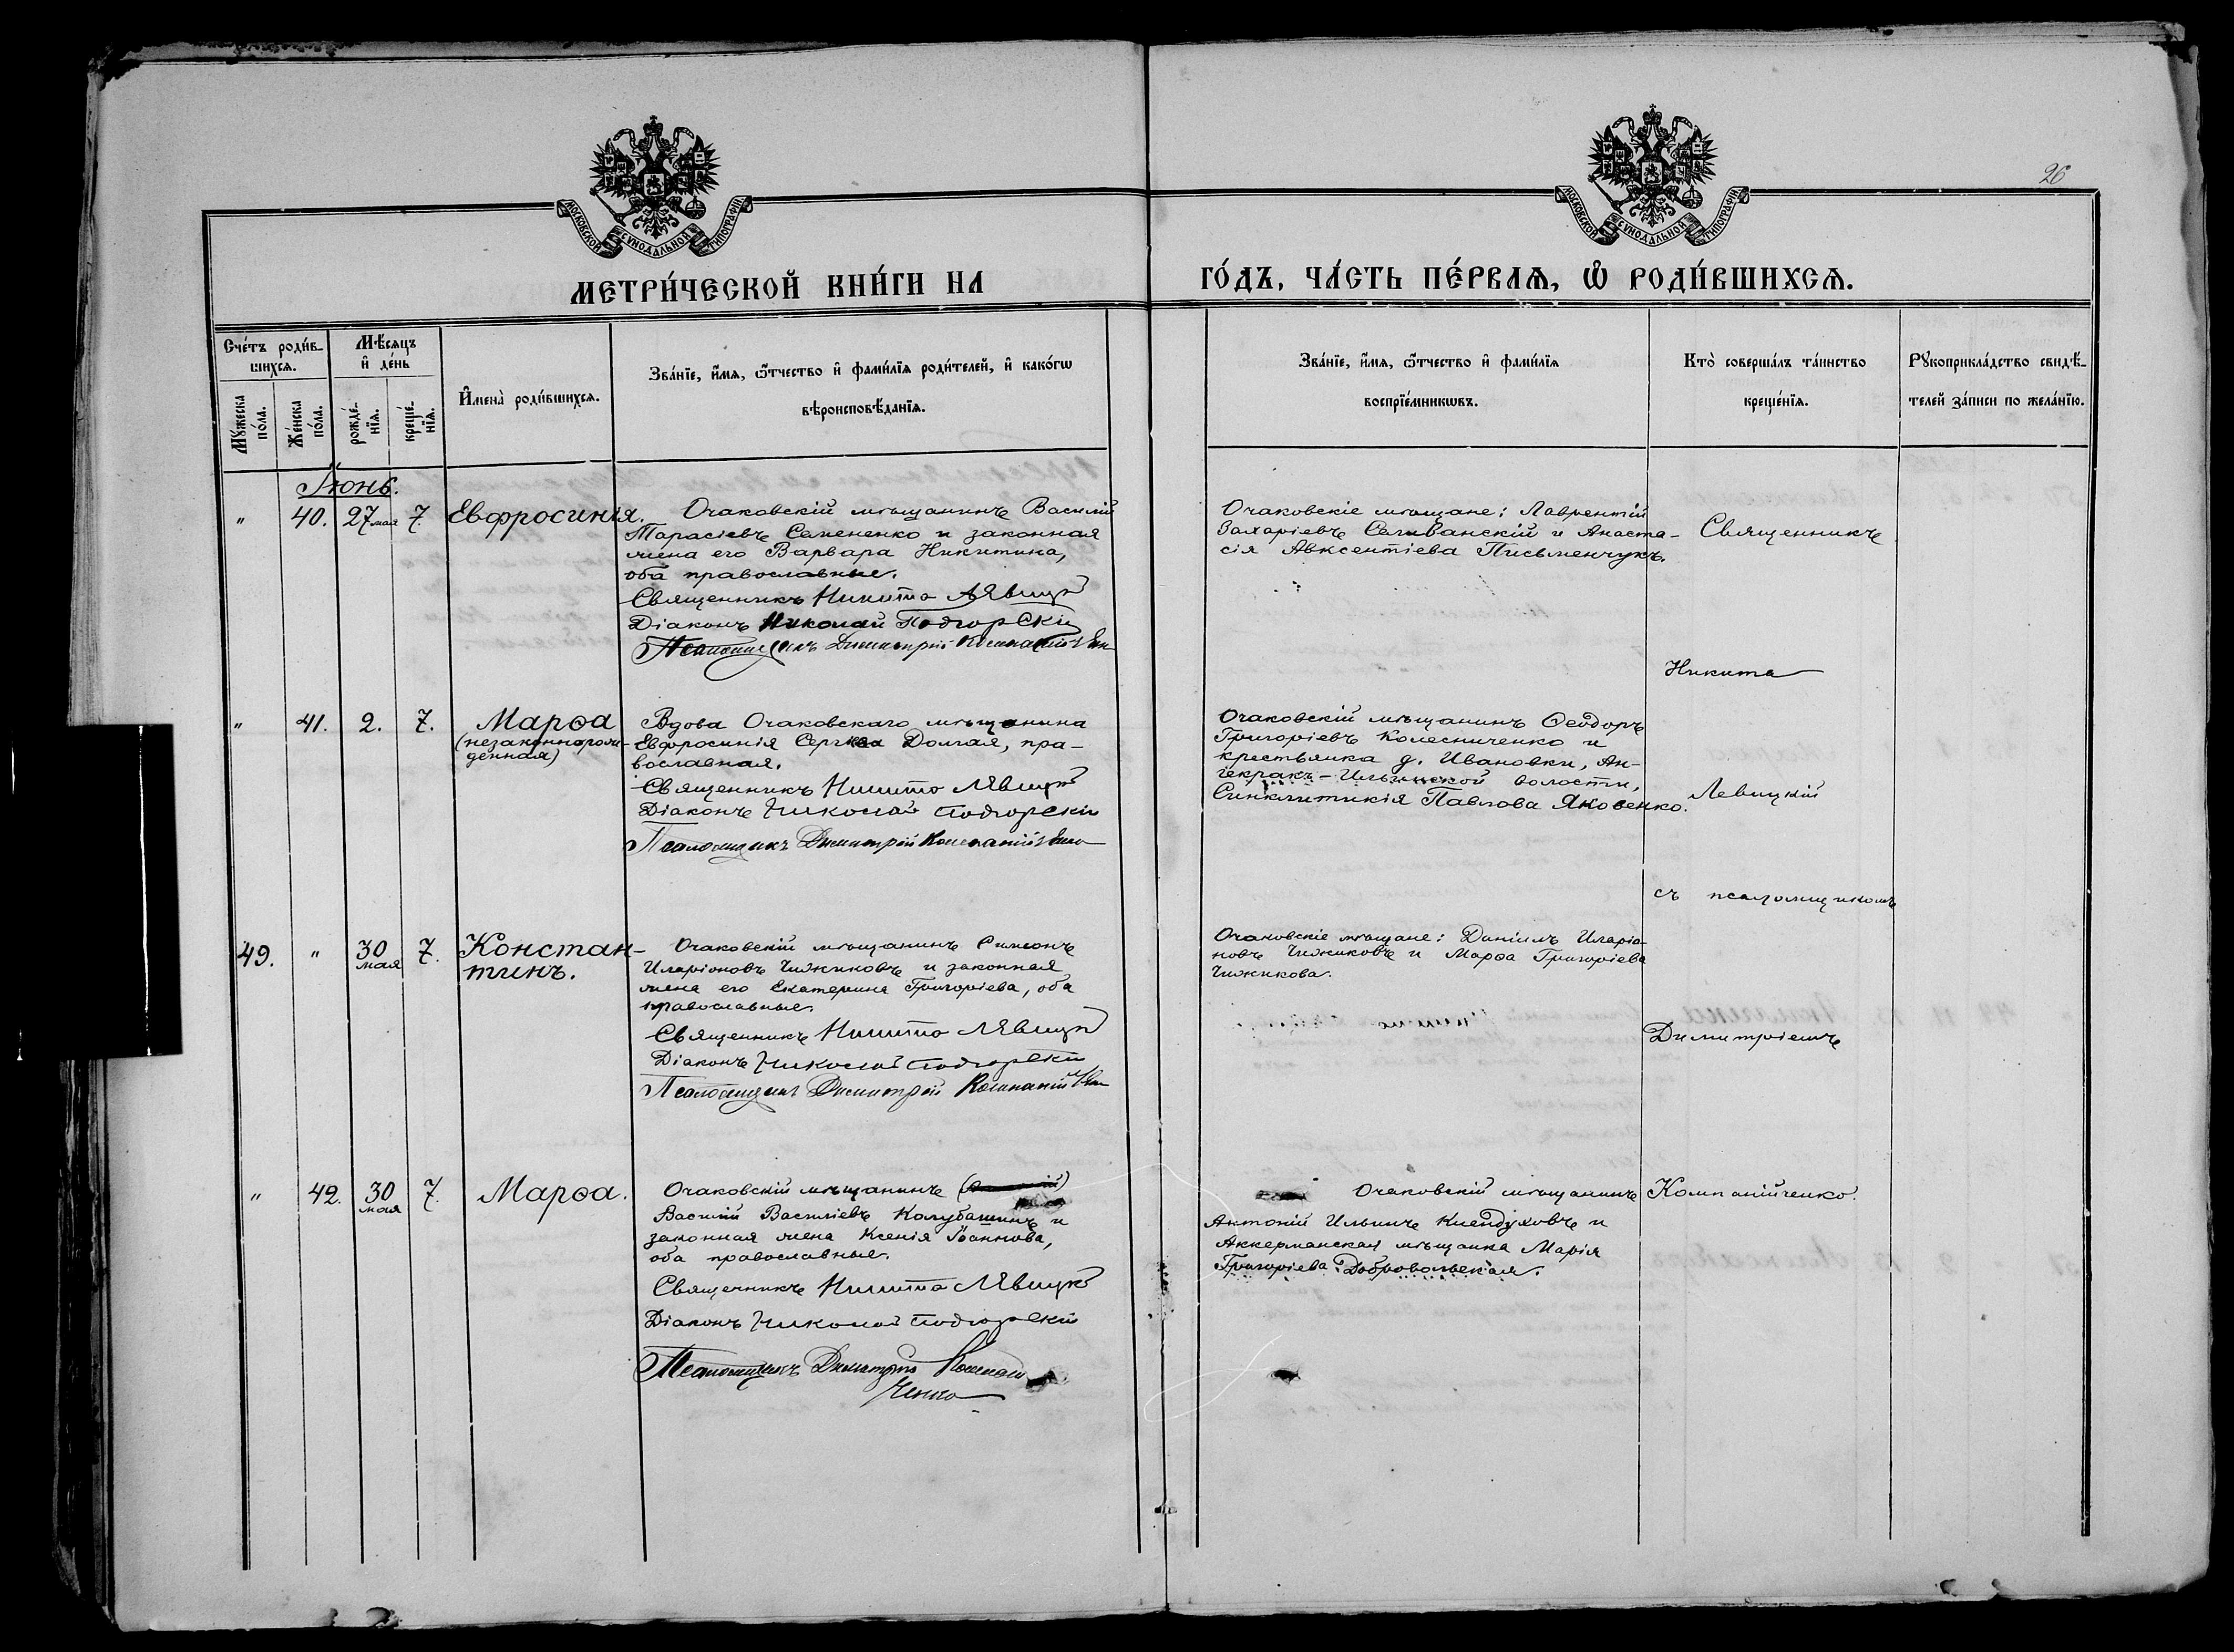 26
МОСКОВСКОЙ СѴНОДАЛЬНОЙ ТИПОГРАФІИ
МОСКОВСКОЙ СѴНОДАЛЬНОЙ ТИПОГРАФІИ
МЕТРИ́ЧЕСКОЙ КНИ́ГИ НА
ГО́ДЪ, ЧА́СТЬ ПЕ́РВАѦ, Ѡ҆ РОДИ́ВШИХСѦ.
Сче́тъ роди́в-
шихсѧ.
Мѣ́сяцъ
и҆ де́нь
Мꙋ́жеска
по́ла.
Же́нска
по́ла.
рожде́-
нїѧ.
креще́-
нїѧ.
И҆мена̀ роди́вшихсѧ.
Зва́нїе, и҆́мѧ, ѻ҆́тчество и҆ фами́лїѧ роди́телей, и҆ како́гѡ
вѣроисповѣ́данїѧ.
Зва́нїе, и҆́мѧ, ѻ҆́тчество и҆ фами́лїѧ
воспрїе́мникѡвъ.
Кто̀ соверша́лъ та́инство
креще́нїѧ.
Рꙋкоприкла́дство свидѣ́-
телей за́писи по жела́нїю.
Іюнь.
" 40. 27 мая 7. Евфросинія.
Очаковскій мѣщанинъ Василій
Тарасіевъ Семененко и законная
жена его Варвара Никитина,
оба православные.
Священникъ Никита Лѣвицкі
Діаконъ Николай Подгорскій
Псаломщикъ Димитрій
Очаковскіе мѣщане: Лаврентій
Захаріевъ Селиванскій и Анаста-
сія Авксентіева Письменчукъ.
Священникъ
Никита
" 41. 2. 7. Марѳа
(незаконнорож-
денная)
Вдова Очаковскаго мѣщанина
Евфросинія Сергіева Долгая, пра-
вославная.
Священникъ Никита Лѣвицкі
Діаконъ Николай Подгорскій
Псаломщикъ Димитрій
Очаковскій мѣщанинъ Ѳеодоръ
Григоріевъ Колесниченко и
крестьянка д. Ивановки, Ан-
чекракъ-Ильинской волости,
Синклитикія Павлова Яковенко.
Левицкій
съ псаломщикомъ
49. " 30 мая 7. Констан-
тинъ.
Очаковскій мѣщанинъ Симеонъ
Иларіоновъ Чижиковъ и законная
жена его Екатерина Григоріева, оба
православные.
Священникъ Никита Лѣвицкі
Діаконъ Николай Подгорскій
Псаломщикъ Димитрій
Очаковскіе мѣщане: Даніилъ Иларіо-
новъ Чижиковъ и Марѳа Григоріева
Чижикова.
Димитріемъ
" 42. 30 мая 7. Марѳа.
Очаковскій мѣщанинъ
Василій Василіевъ Колубашинъ и
законная жена Ксенія Іоаннова,
оба православные.
Священникъ Никита Лѣвицкі
Діаконъ Николай Подгорскій
Псаломщикъ Димитрій Компаній
ченко
Очаковскій мѣщанинъ
Антоній Ильинъ и
Аккерманская мѣщанка Марія
Григоріева Добровольская.
Компанійченко.